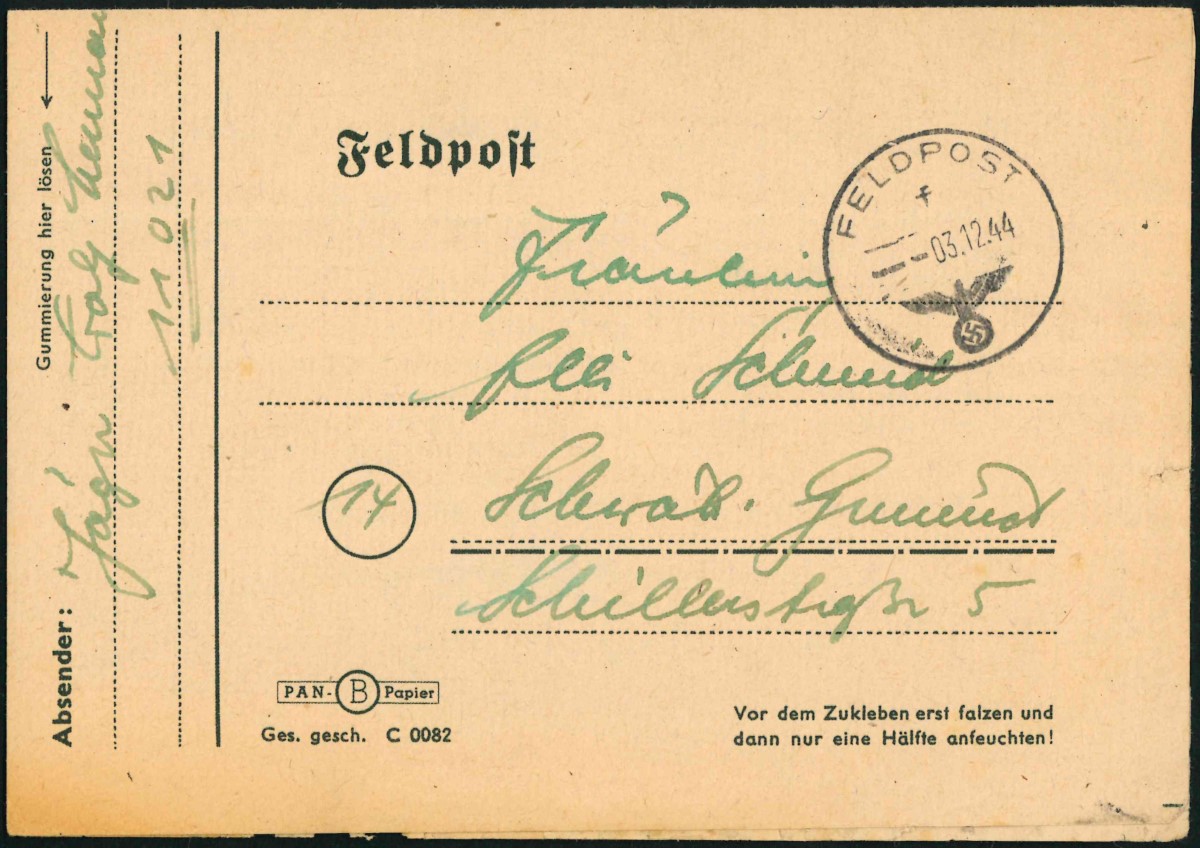 Gummierung hier lösen
Absender: Jäger
11021
Feldpost
FELDPOST
f
-03.12.44
Fräulein
Elli Schmid
14
Schwäb. Gmünd
Schillerstraße 5
PAN- B Papier
Ges. gesch. C 0082
Vor dem Zukleben erst falzen und
dann nur eine Hälfte anfeuchten!